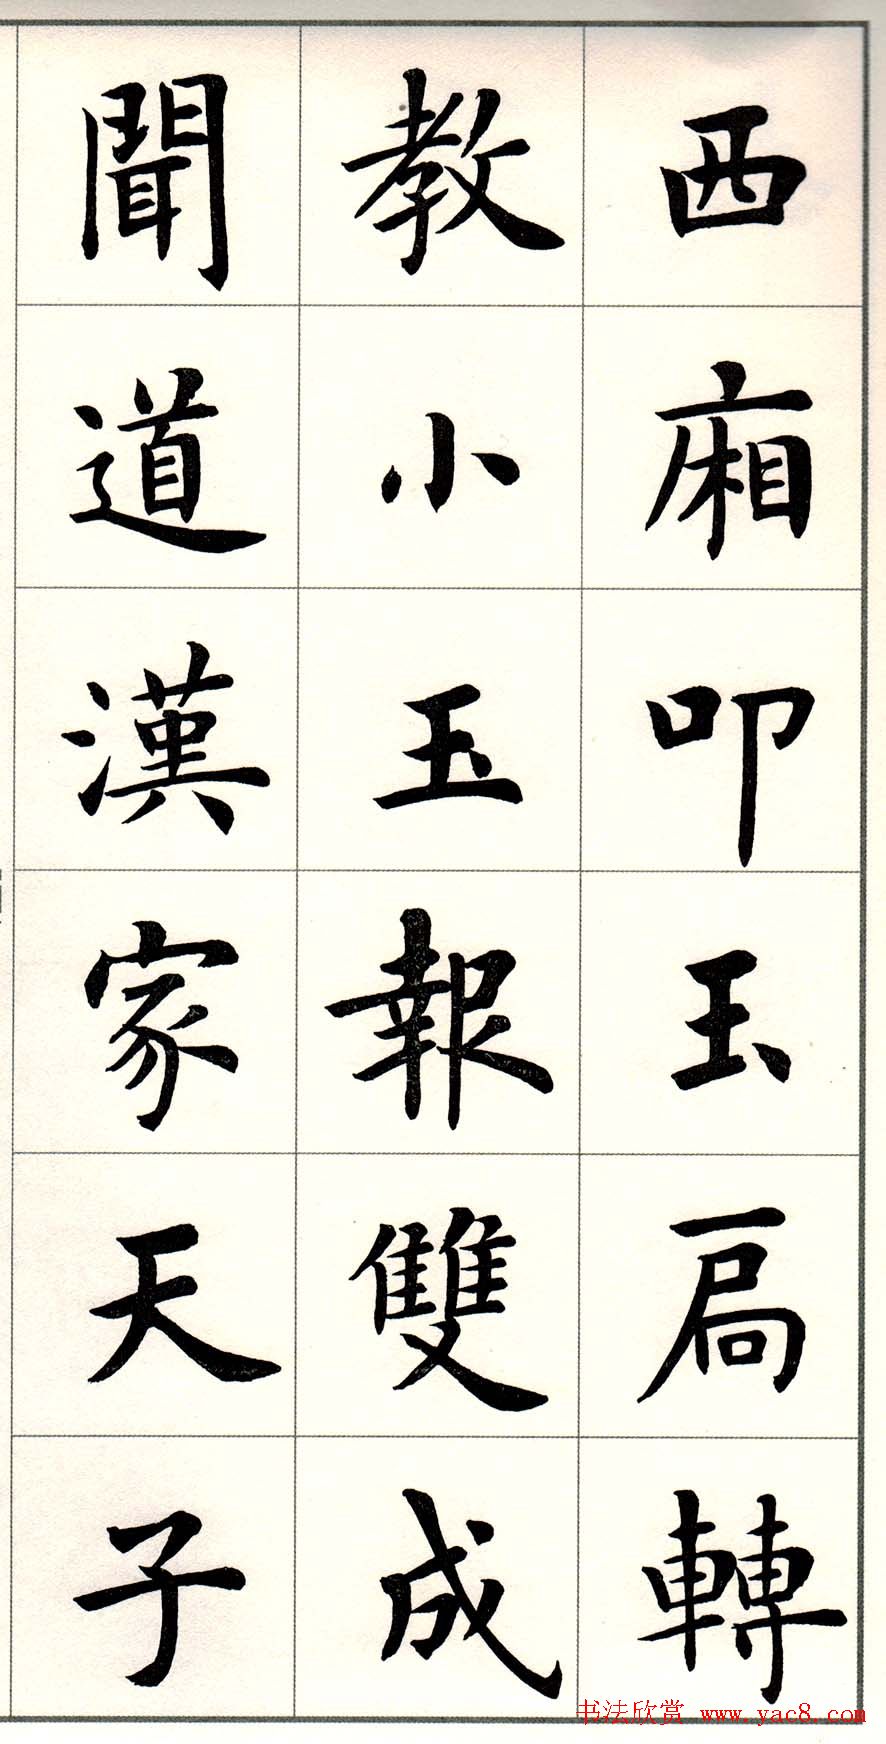 西廂叩玉扃轉
教小玉報雙成
聞道漢家天子
书法欣赏 www.yac8.com